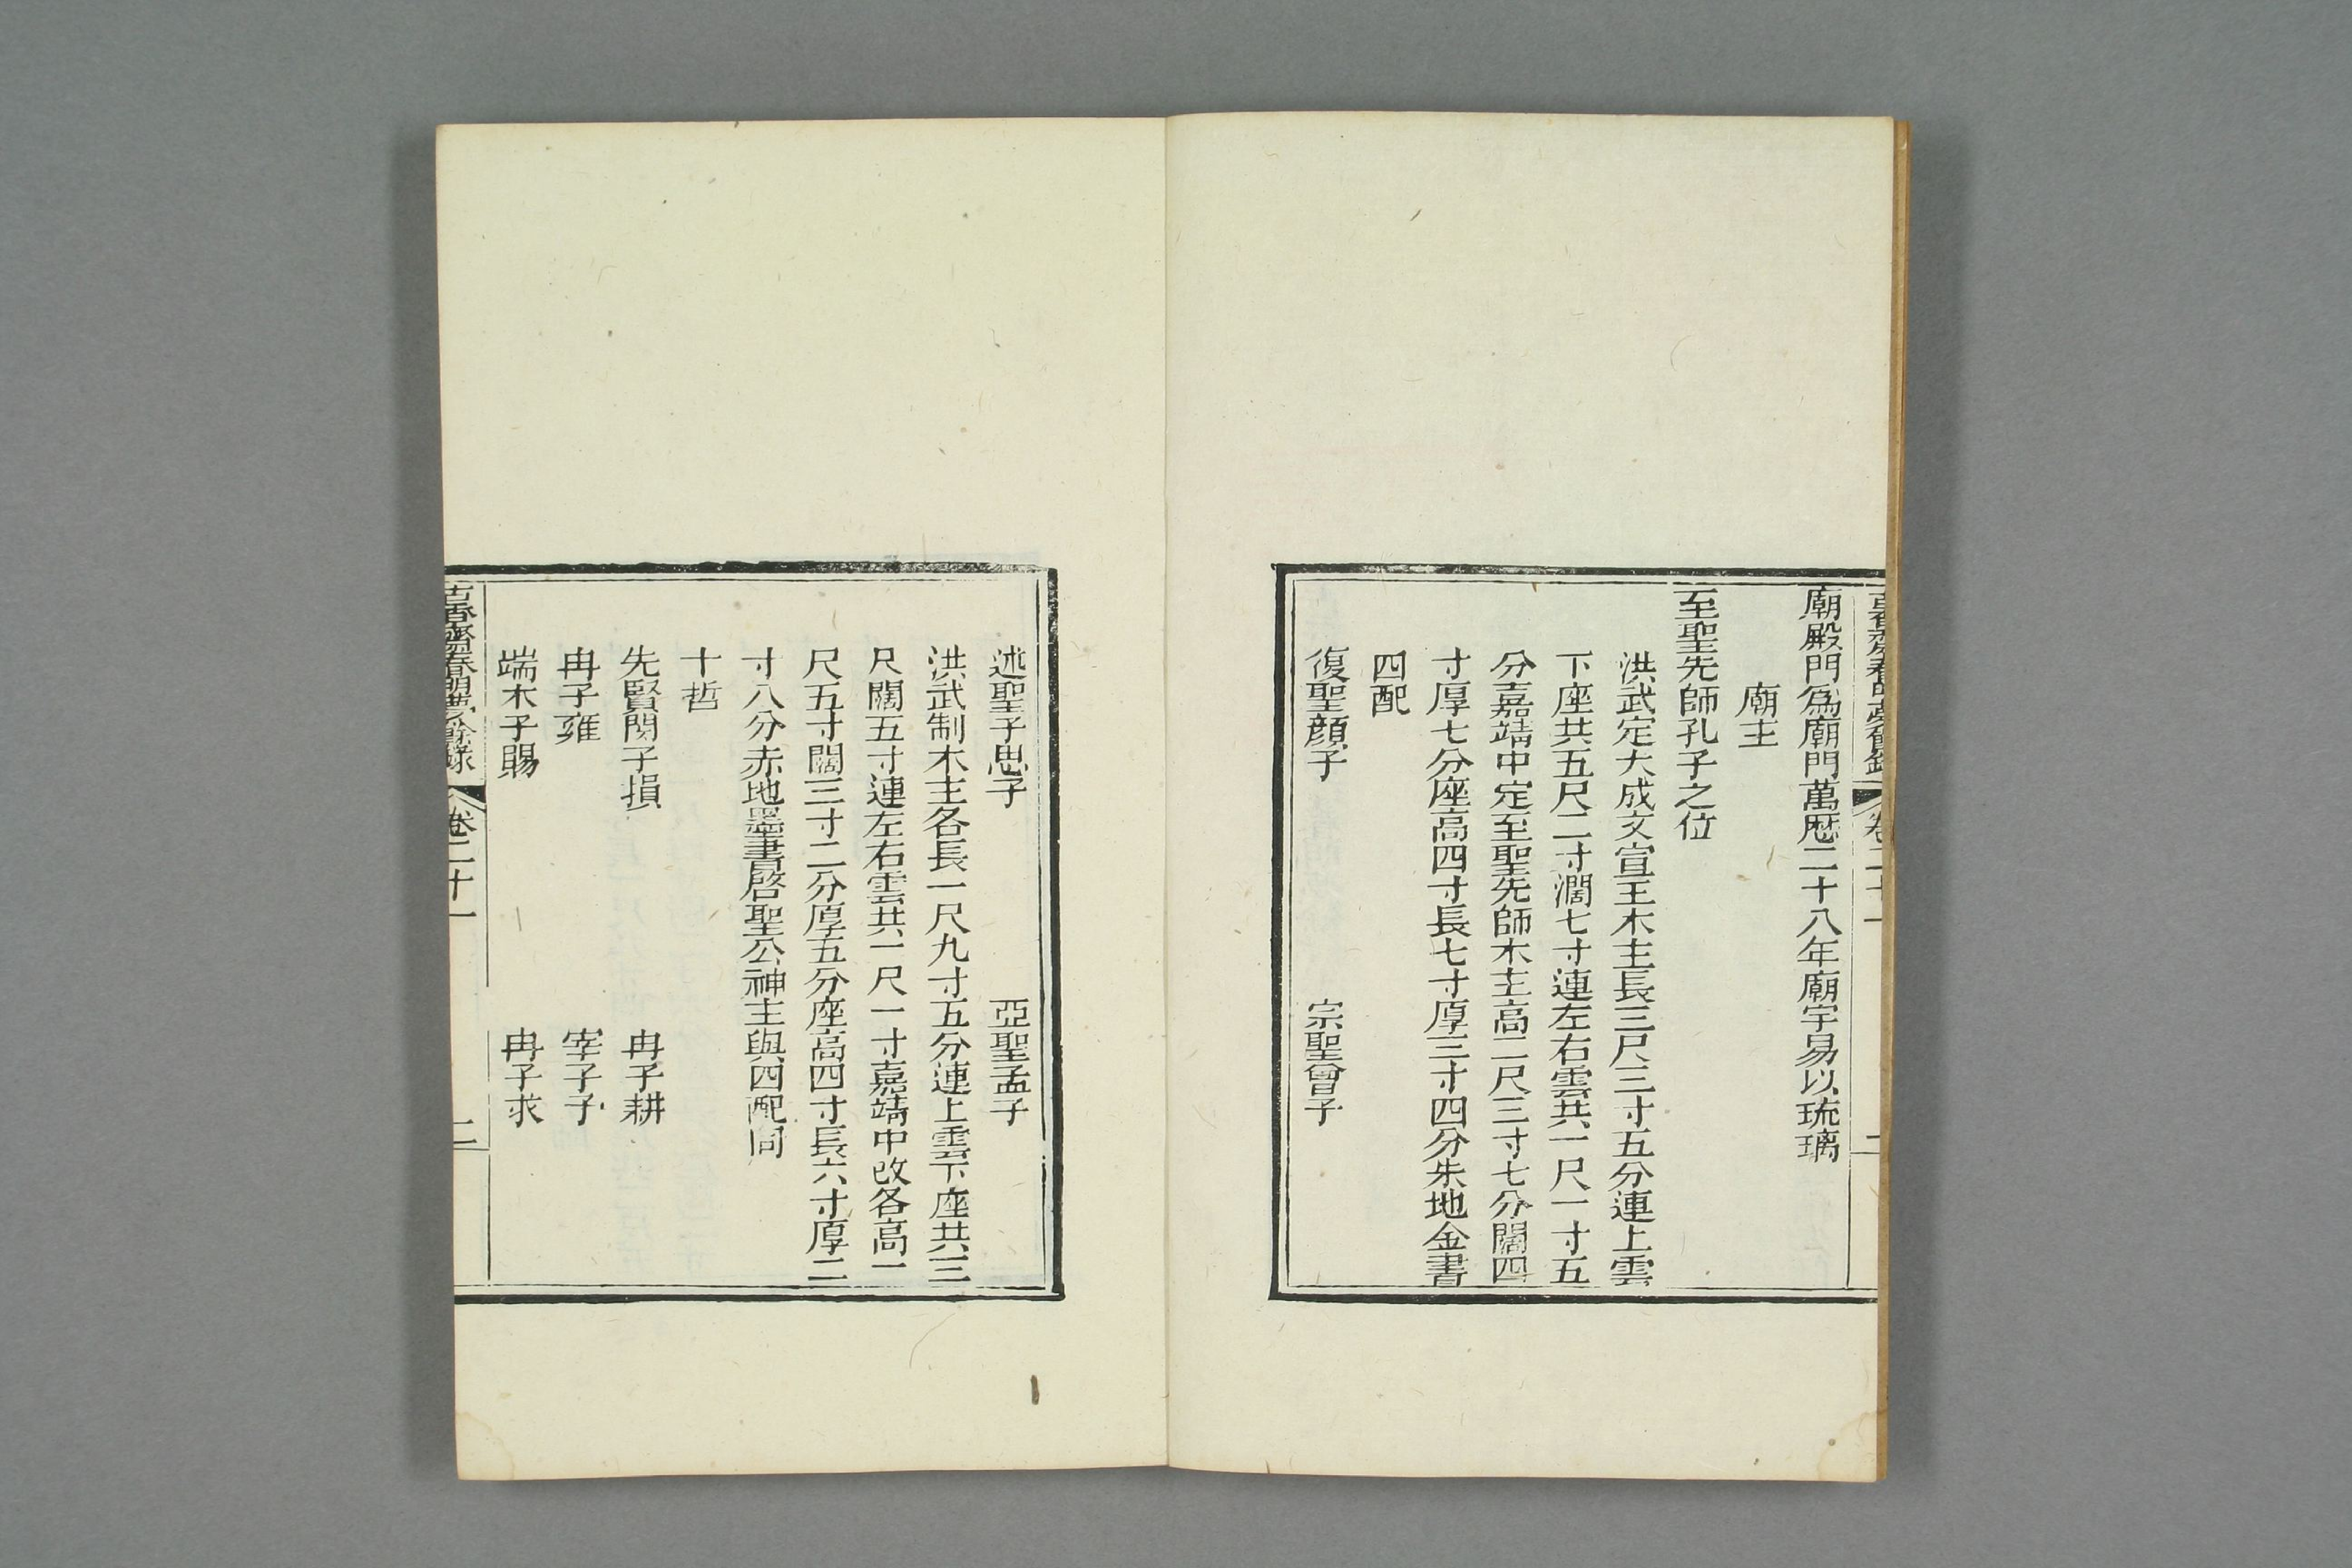 廟殿門爲廟門萬歴二十八年廟宇易以琉璃
廟主
至聖先師孔子之位
洪武定大成文宣王木主長三尺三寸五分連上雲
下座共五尺二寸濶七寸連左右雲共一尺一寸五
分嘉靖中定至聖先師木主高二尺三寸七分闊四
寸厚七分座高四寸長七寸厚三寸四分朱地金書
四配
復聖顔子 宗聖曾子
述聖子思子 亞聖孟子
洪武制木主各長一尺九寸五分連上雲下座共三
尺闊五寸連左右雲共一尺一寸嘉靖中改各高一
尺五寸闊三寸二分厚五分座高四寸長六寸厚二
寸八分赤地墨書啓聖公神主與四配同
十哲
先賢閔子損 冉子耕
冉子雍 宰子予
端木子賜 冉子求
古香齋春明夢餘錄 卷二十一 二